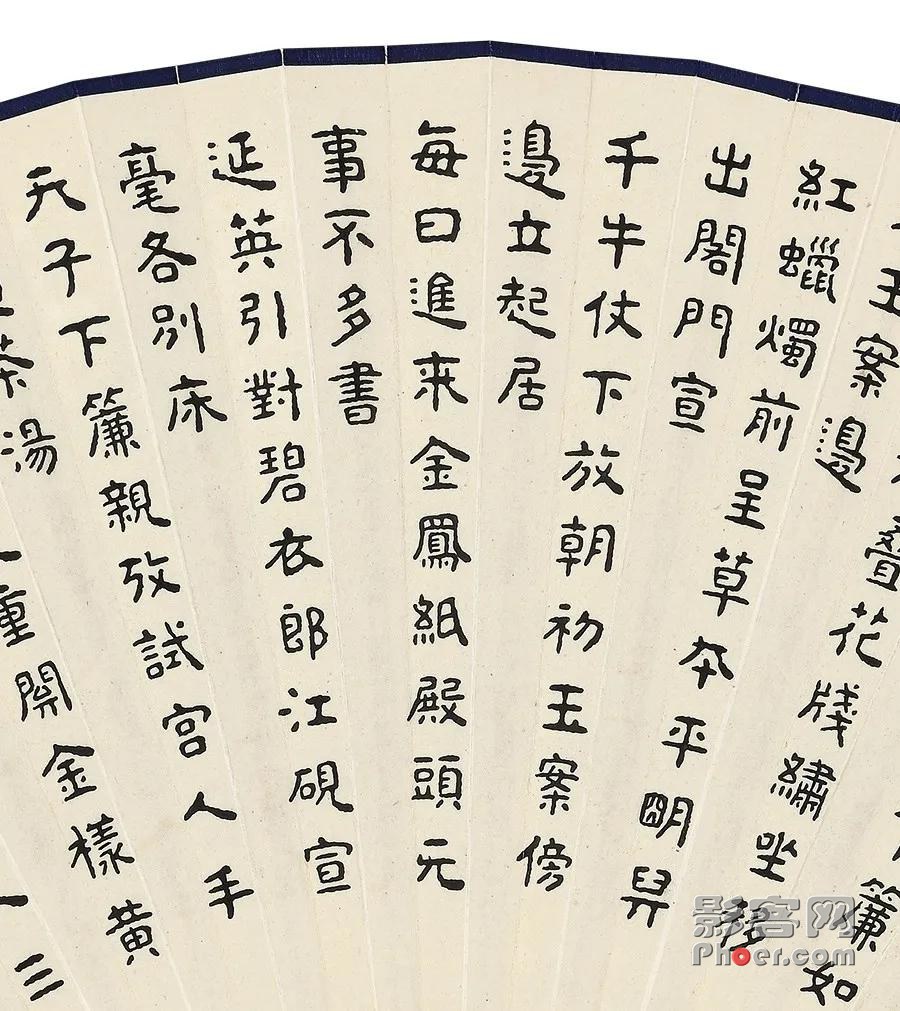 簾如
疊花牋繡坐移
玉案邊
紅蠟燭前呈草本平明舁
出閣門宣
千牛仗下放朝初玉案傍
邊立起居
每日進來金鳳紙殿頭元
事不多書
延英引對碧衣郎江硯宣
毫各別床
天子下簾親攷試宮人手
茶湯
重開金樣黃
三
影客网
Phoer.com